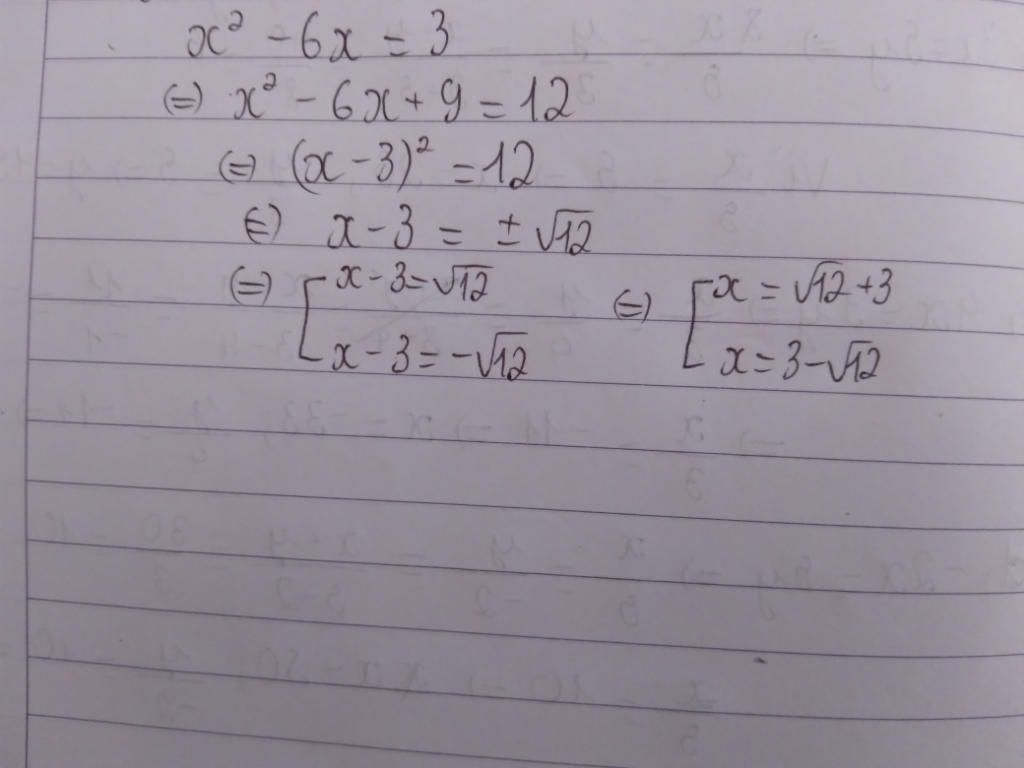 x² - 6x = 3
(=) x² - 6x + 9 = 12
(=) (x - 3)² = 12
(=) x - 3 = ± √12
(=) [ x - 3 = √12 (=) [ x = √12 + 3
x - 3 = - √12 x = 3 - √12